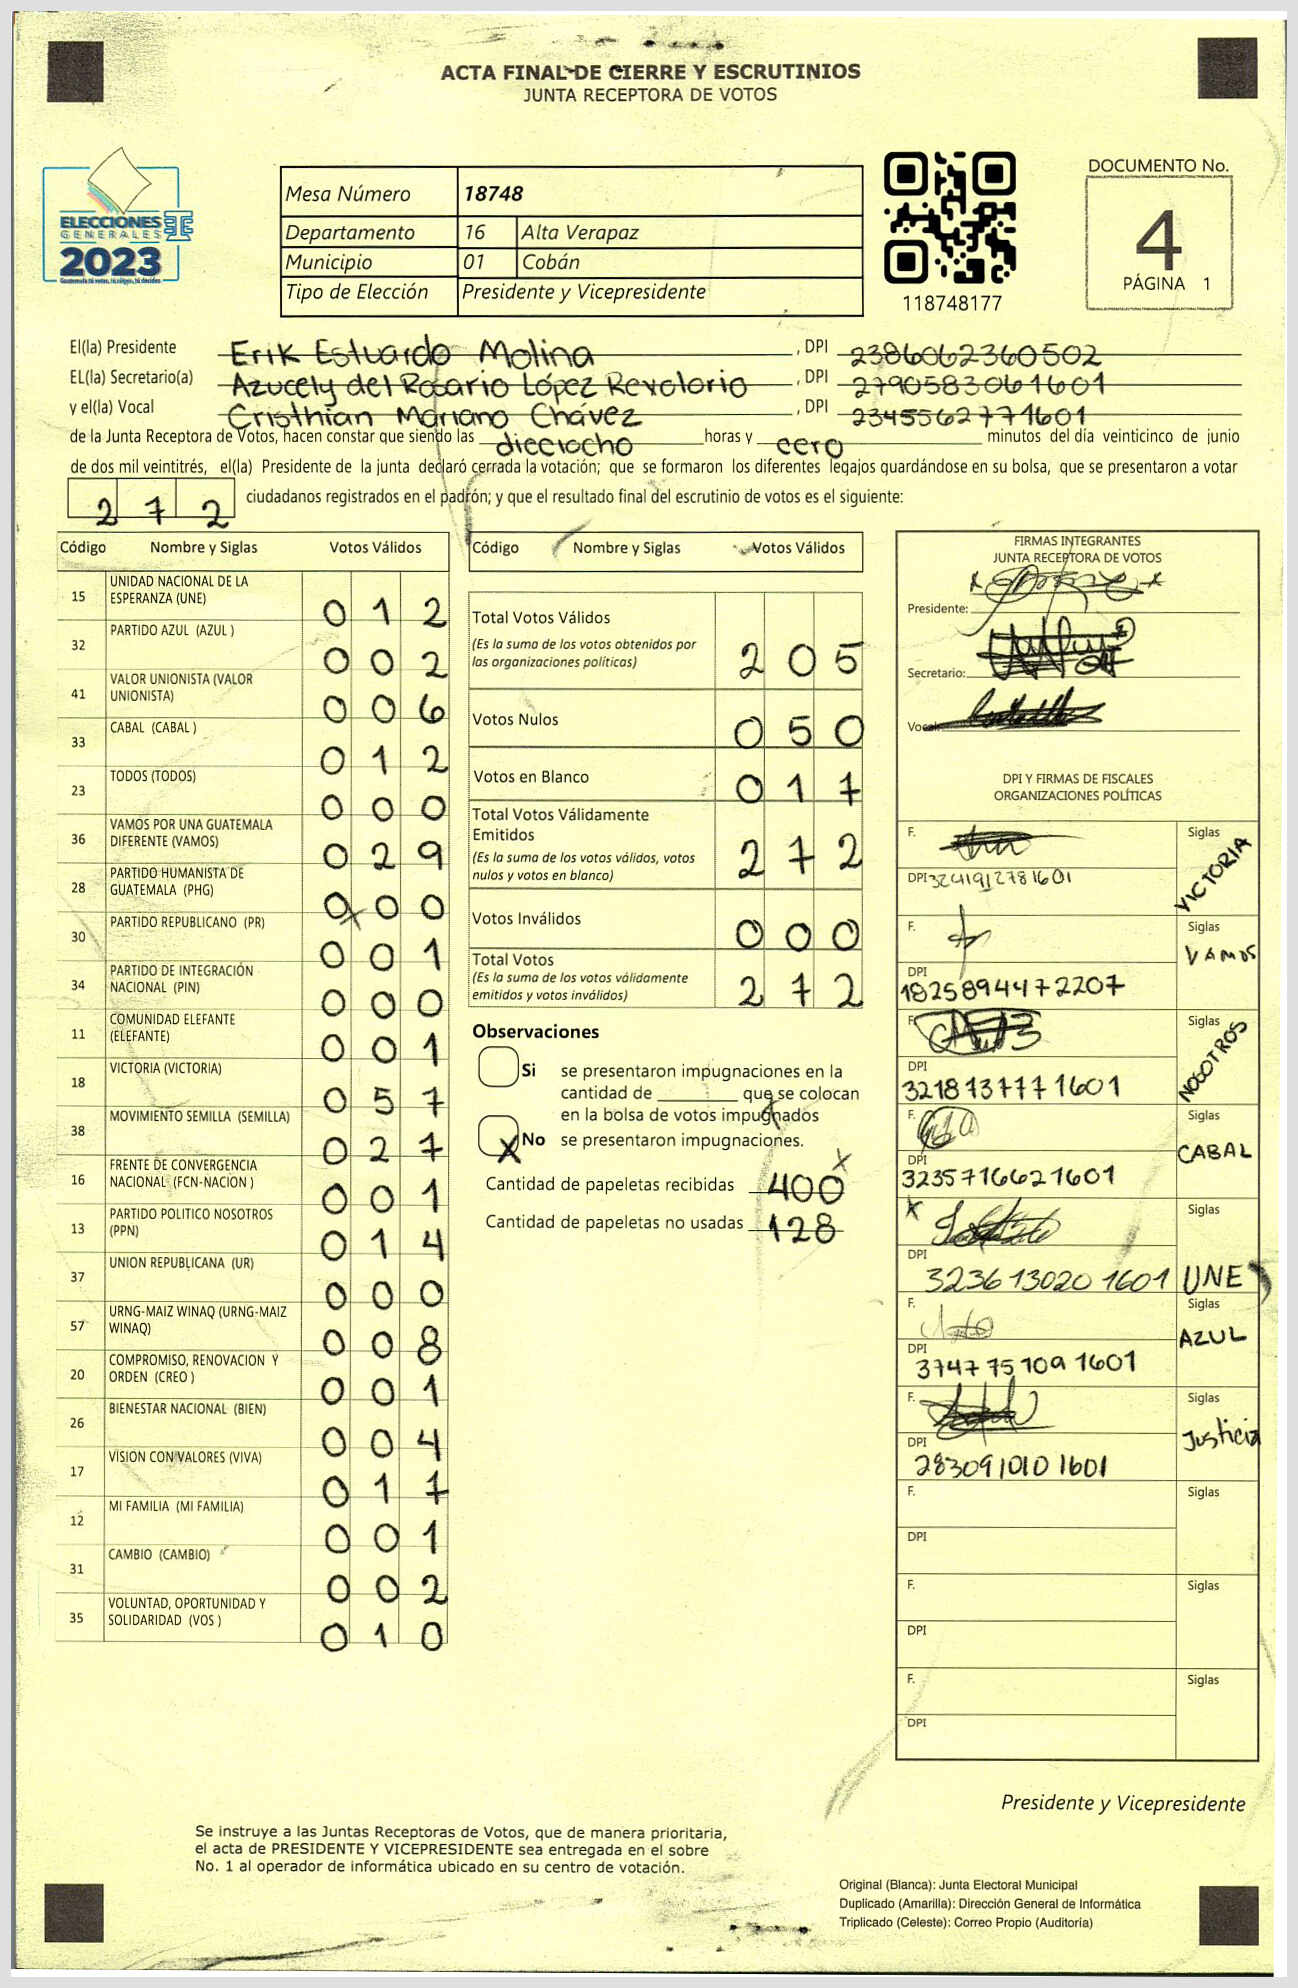 ACTA FINAL DE CIERRE Y ESCRUTINIOS
JUNTA RECEPTORA DE VOTOS
ELECCIONES
GENERALES
2023
Mesa Número 18748
Departamento 16 Alta Verapaz
Municipio 01 Cobán
Tipo de Elección Presidente y Vicepresidente
118748177
DOCUMENTO No.
4
PÁGINA 1
El(la) Presidente Erik Estuardo Molina , DPI 2386062360502
EL(la) Secretario(a) Azucely del Rosario López Revolorio , DPI 2790583061601
y el(la) Vocal Cristhian Mariano Chávez , DPI 2345562771601
de la Junta Receptora de Votos, hacen constar que siendo las dieciocho horas y cero minutos del día veinticinco de junio
de dos mil veintitrés, el(la) Presidente de la junta declaró cerrada la votación; que se formaron los diferentes legajos guardándose en su bolsa, que se presentaron a votar
272 ciudadanos registrados en el padrón; y que el resultado final del escrutinio de votos es el siguiente:
Código Nombre y Siglas Votos Válidos
15 UNIDAD NACIONAL DE LA
ESPERANZA (UNE) 012
32 PARTIDO AZUL (AZUL ) 002
41 VALOR UNIONISTA (VALOR
UNIONISTA) 006
33 CABAL (CABAL ) 012
23 TODOS (TODOS) 000
36 VAMOS POR UNA GUATEMALA
DIFERENTE (VAMOS) 029
28 PARTIDO HUMANISTA DE
GUATEMALA (PHG) 000
30 PARTIDO REPUBLICANO (PR) 001
34 PARTIDO DE INTEGRACIÓN
NACIONAL (PIN) 000
11 COMUNIDAD ELEFANTE
(ELEFANTE) 001
18 VICTORIA (VICTORIA) 057
38 MOVIMIENTO SEMILLA (SEMILLA) 027
16 FRENTE DE CONVERGENCIA
NACIONAL (FCN-NACION ) 001
13 PARTIDO POLITICO NOSOTROS
(PPN) 014
37 UNION REPUBLICANA (UR) 000
57 URNG-MAIZ WINAQ (URNG-MAIZ
WINAQ) 008
20 COMPROMISO, RENOVACION Y
ORDEN (CREO ) 001
26 BIENESTAR NACIONAL (BIEN) 004
17 VISION CON VALORES (VIVA) 017
12 MI FAMILIA (MI FAMILIA) 001
31 CAMBIO (CAMBIO) 002
35 VOLUNTAD, OPORTUNIDAD Y
SOLIDARIDAD (VOS ) 010
Código Nombre y Siglas Votos Válidos
Total Votos Válidos
(Es la suma de los votos obtenidos por
las organizaciones políticas) 205
Votos Nulos 050
Votos en Blanco 017
Total Votos Válidamente
Emitidos
(Es la suma de los votos válidos, votos
nulos y votos en blanco) 272
Votos Inválidos 000
Total Votos
(Es la suma de los votos válidamente
emitidos y votos inválidos) 272
Observaciones
Si se presentaron impugnaciones en la
cantidad de ________ que se colocan
en la bolsa de votos impugnados
X No se presentaron impugnaciones.
Cantidad de papeletas recibidas 400
Cantidad de papeletas no usadas 128
FIRMAS INTEGRANTES
JUNTA RECEPTORA DE VOTOS
Presidente:
Secretario:
Vocal:
DPI Y FIRMAS DE FISCALES
ORGANIZACIONES POLÍTICAS
F. Siglas VICTORIA
DPI 3241912781601
F. Siglas VAMOS
DPI 1825894472207
F. Siglas NOSOTROS
DPI 3218737771601
F. Siglas CABAL
DPI 3235716621601
Siglas UNE
DPI 3236130201601
F. Siglas AZUL
DPI 3747751091601
F. Siglas Justicia
DPI 2830910101601
F. Siglas
DPI
F. Siglas
DPI
F. Siglas
DPI
Presidente y Vicepresidente
Se instruye a las Juntas Receptoras de Votos, que de manera prioritaria,
el acta de PRESIDENTE Y VICEPRESIDENTE sea entregada en el sobre
No. 1 al operador de informática ubicado en su centro de votación.
Original (Blanca): Junta Electoral Municipal
Duplicado (Amarilla): Dirección General de Informática
Triplicado (Celeste): Correo Propio (Auditoría)